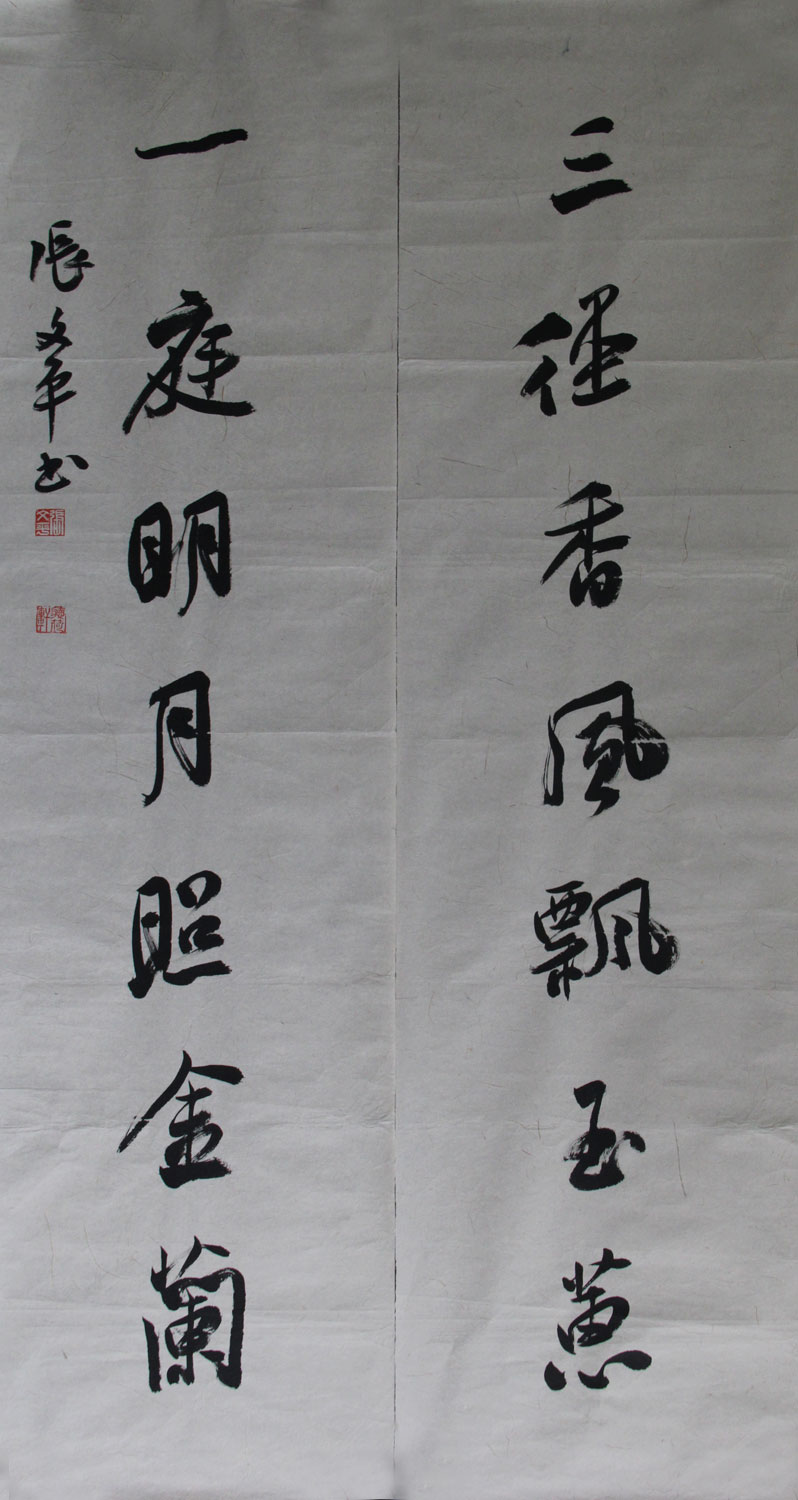 三径香風飄玉蕙
一庭明月照金蘭
張文平书